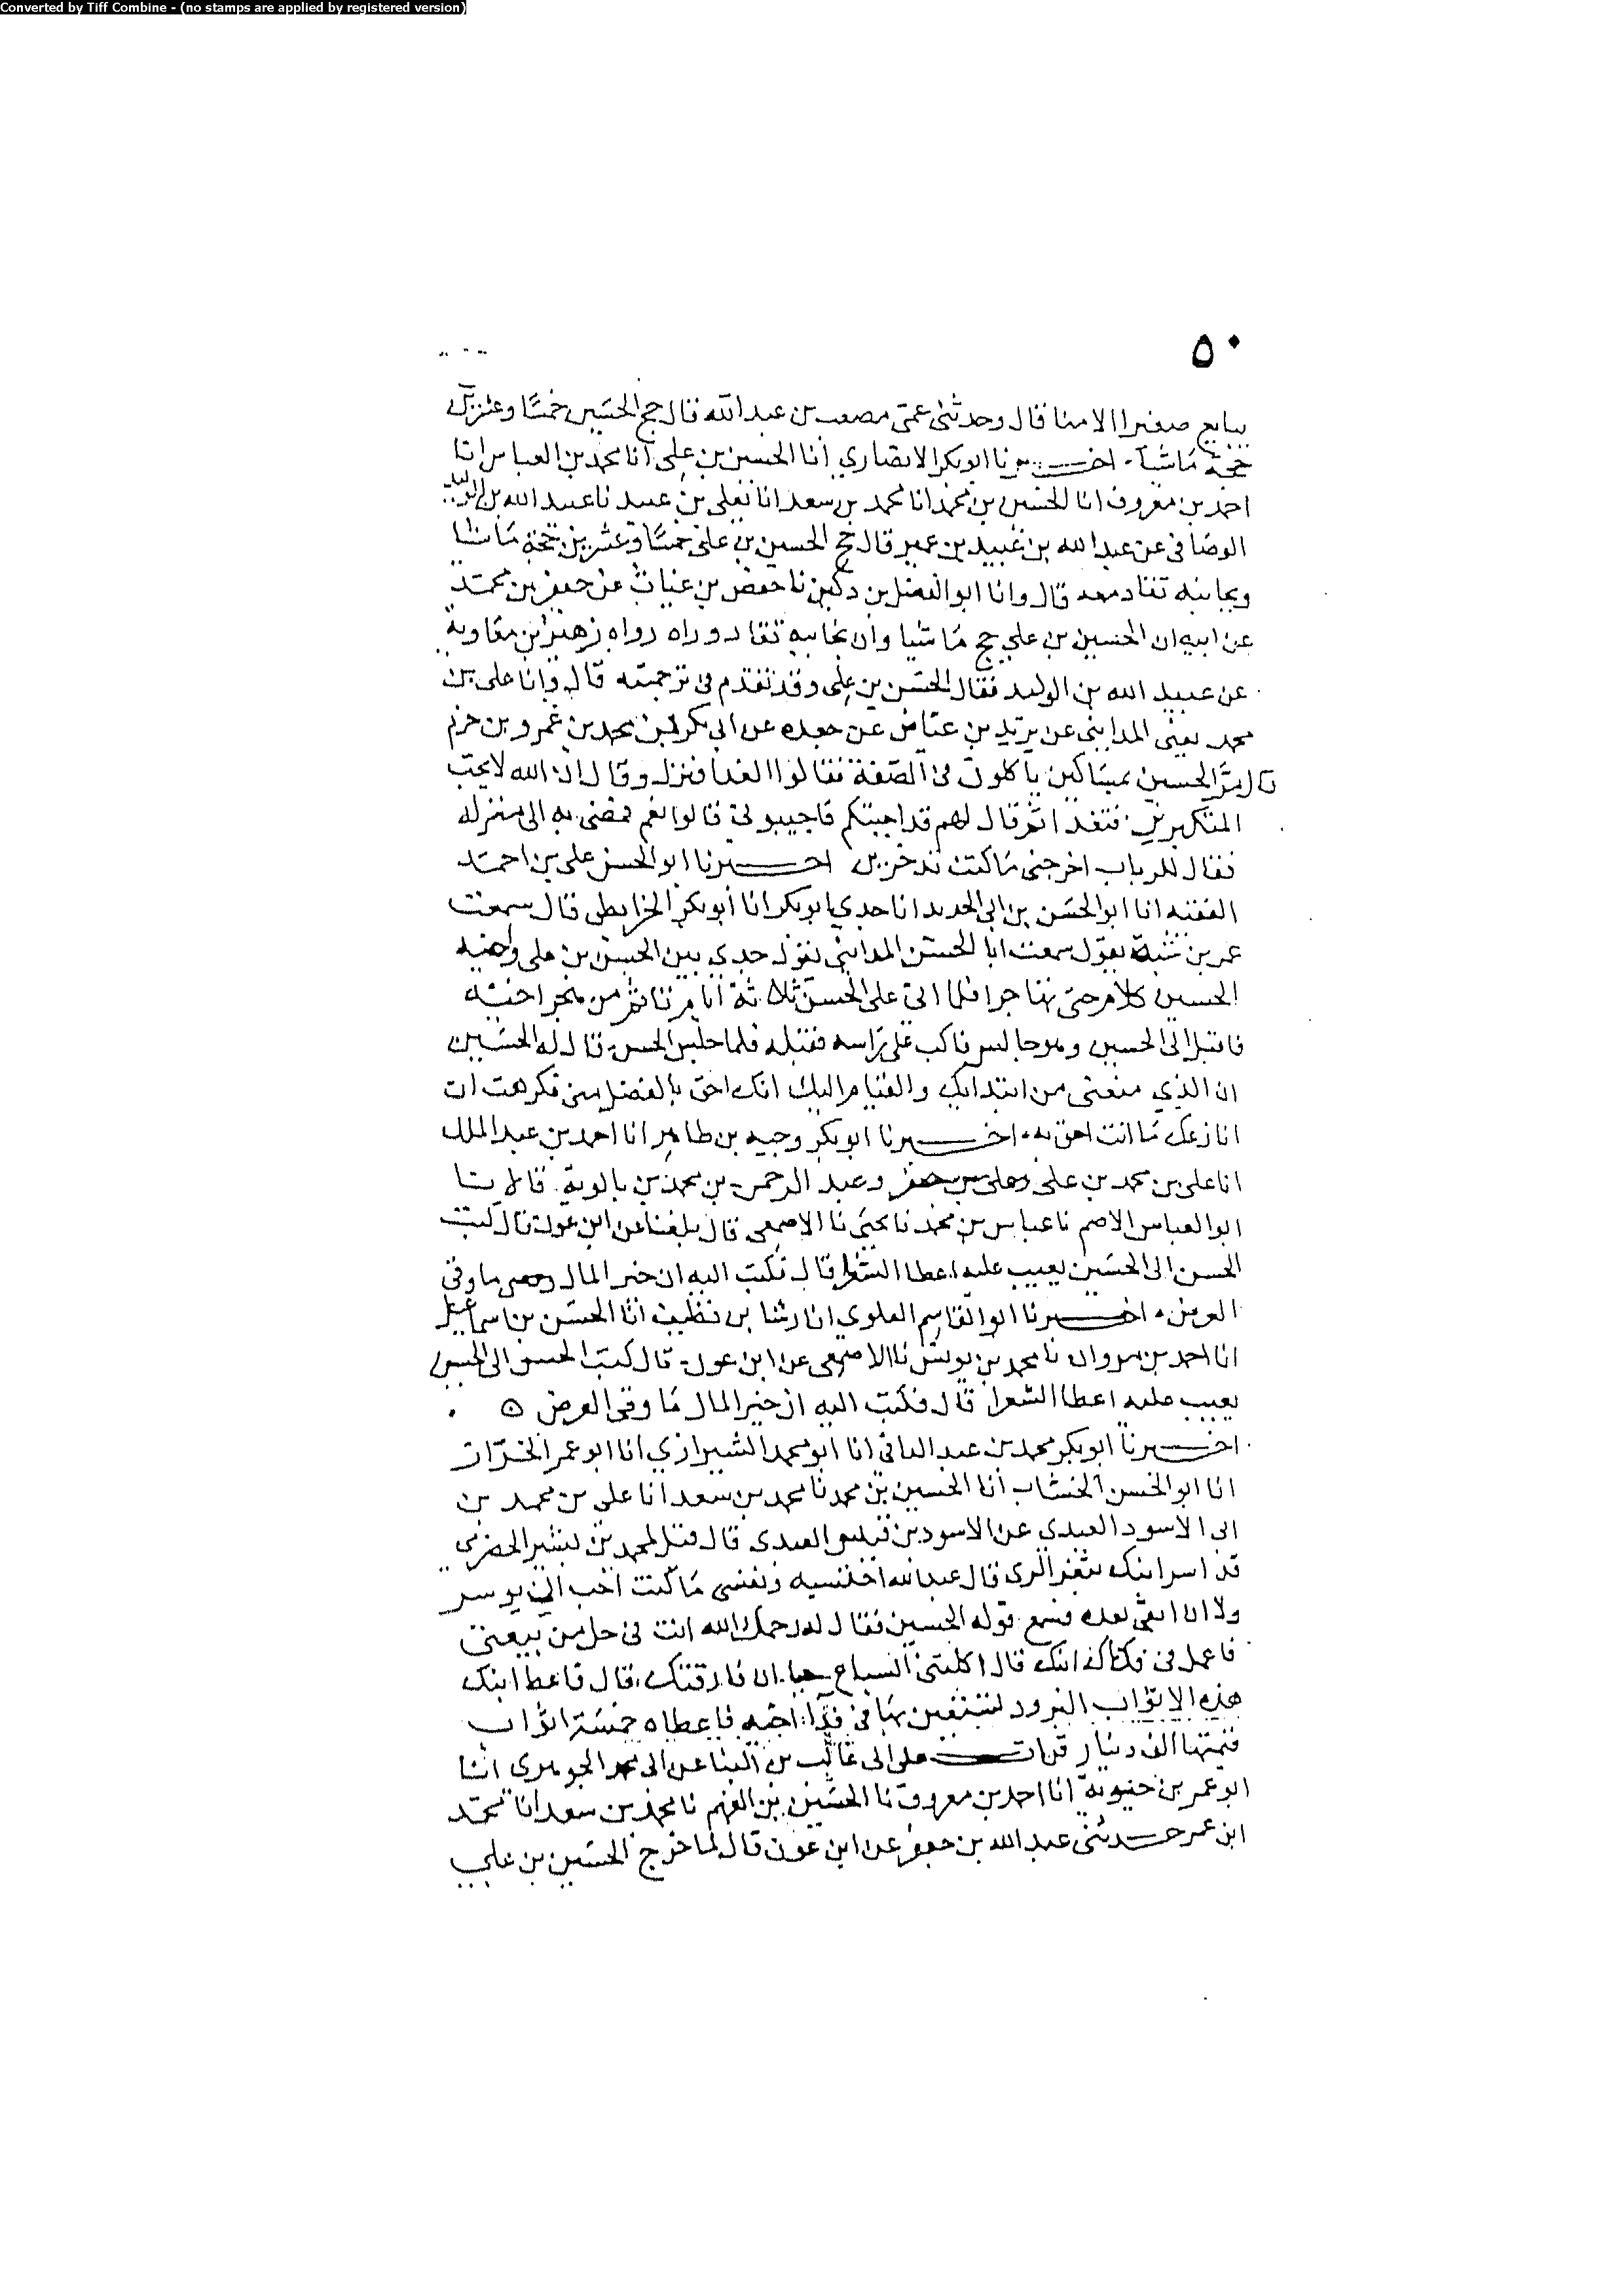 Converted by Tiff Combine - (no stamps are applied by registered version)
٥٠
يبايع صغيرا الا منا قال وحدثنى عمى مصعب بن عبد الله قال حج الحسين خمسا وعشرين
حجة ماشيا اخبرنا ابو بكر الانصاري انا الحسن بن على انا محمد بن العباس انا
احمد بن معروف انا الحسين بن محمد انا محمد بن سعد انا يعلى بن عبيد نا عبيد الله بن الوليد
الوصافى عن عبد الله بن عبيد بن عمير قال حج الحسين بن على خمسا وعشرين حجة ماشيا
ونجائبه تقاد معه قال وانا ابو الفضل بن دكين نا حفص بن غياث عن جعفر بن محمد
عن ابيه ان الحسين بن علي حج ماشيا وان نجائبه تقاد وراه رواه زهير بن معاوية
عن عبيد الله بن الوليد فقال الحسن بن على وقد تقدم فى ترجمته قال وانا على بن
محمد يعنى المداينى عن يزيد بن عياض عن جعده عن ابى بكر بن محمد بن عمرو بن حزم
قال مر الحسين بمساكين يأكلون فى الصفة فقالوا الغدا فنزل وقال ان الله لا يحب
المتكبرين فتغدا ثم قال لهم قد اجبتكم فاجيبونى قالوا نعم فمضى به الى منزله
فقال للرباب اخرجى ما كنت تدخرين اخبرنا ابو الحسن على بن احمد
الفقيه انا ابو الحسن بن ابى الحديد انا جدي ابو بكر انا أبو بكر الخرايطى قال سمعت
عمر بن شبة يقول سمعت ابا الحسن المداينى يقول جرى بين الحسن بن على واخيه
الحسين كلام حتى تهاجرا فلما اتى على الحسن ثلاثة أيام تاثم من هجر اخيه
فاقبل الى الحسين وهو جالس فاكب على راسه فقبله فلما جلس الحسن قال له الحسين
ان الذي منعنى من ابتدائك والقيام اليك انك احق بالفضل منى فكرهت ان
انازعك ما انت احق به اخبرنا ابو بكر وجيه بن طاهر انا احمد بن عبد الملك
انا على بن محمد بن على وعلى بن جعفر وعبد الرحمن بن محمد بن بالوية قالا نا
ابو العباس الاصم نا عباس بن محمد نا يحيى نا الاصمعى قال بلغنا عن ابن عون قال كتب
الحسن الى الحسين يعيب عليه اعطا الشعرا قال فكتب اليه ان خير المال ما وقى
العرض اخبرنا ابو القاسم العلوي انا رشا بن نظيف انا الحسن بن اسماعيل
انا احمد بن مروان نا محمد بن يونس نا الاصمعى عن ابن عون قال كتب الحسن الى الحسين
يعيب عليه اعطا الشعرا قال فكتب اليه ان خير المال ما وقى العرض
اخبرنا ابو بكر محمد بن عبد الباقى انا ابو محمد الشيرازي انا ابو عمر الخزاز
انا ابو الحسن الخشاب أنا الحسين بن محمد نا محمد بن سعد انا على بن محمد بن
ابى الاسود العبدي عن الاسود بن قيس العبدى قال قيل لمحمد بن بشير الحضرمى
قد اسر ابنك بثغر الرى قال عند الله احتسبه ونفسى ما كنت احب ان يوسر
ولا ان ابقى بعده فسمع قوله الحسين فقال له رحمك الله انت فى حل من بيعتى
فاعمل فى فكاك ابنك قال اكلتنى السباع حيا ان فارقتك قال فاعط ابنك
هذه الاثواب البرود يستعين بها فى فدا اخيه فاعطاه خمسة اثواب
قيمتها الف دينار قرات على ابى غالب بن البنا عن ابى محمد الجوهرى انا
ابو عمر بن حيوية انا احمد بن معروف نا الحسين بن الفهم نا محمد بن سعد انا محمد
ابن عمر حدثنى عبد الله بن جعفر عن ابن عون قال لما خرج الحسين بن علي